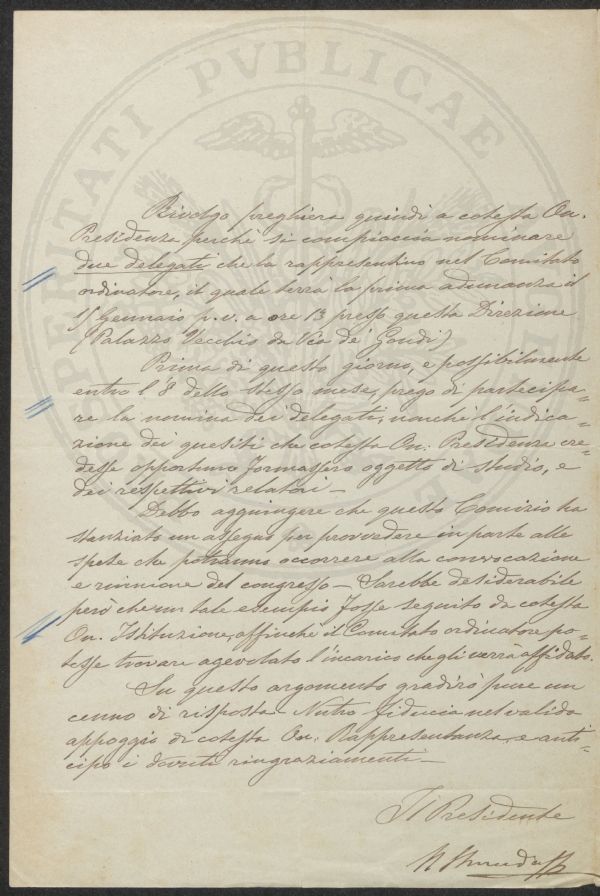 PROSPERITATI PVBLICAE
Rivolgo preghiera quindi a cotesta On.
Presidenza perchè si compiaccia nominare
due delegati che la rappresentino nel Comitato
ordinatore, il quale terrà la prima adunanza il
15 Gennaio p.v. a ore 13 presso questa Direzione
(Palazzo Vecchio da Via de' Gondi)
Prima di questo giorno, e possibilmente
entro l'8 dello stesso mese, prego di partecipa=
re la nomina dei delegati, nonchè l'indica=
zione dei quesiti che cotesta On. Presidenza cre=
desse opportuno formassero oggetto di studio, e
dei respettivi relatori_
Debbo aggiungere che questo Comizio ha
stanziato un assegno per provvedere in parte alle
spese che potranno occorrere alla convocazione
e riunione del congresso_ Sarebbe desiderabile
però che un tale esempio fosse seguito da cotesta
On. Istituzione, affinchè il Comitato ordinatore po=
tesse trovare agevolato l'incarico che gli verrà affidato.
Su questo argomento gradirò pure un
cenno di risposta_ Nutro fiducia nel valido
appoggio di cotesta On. Rappresentanza, e anti=
cipo i dovuti ringraziamenti_
Il Presidente